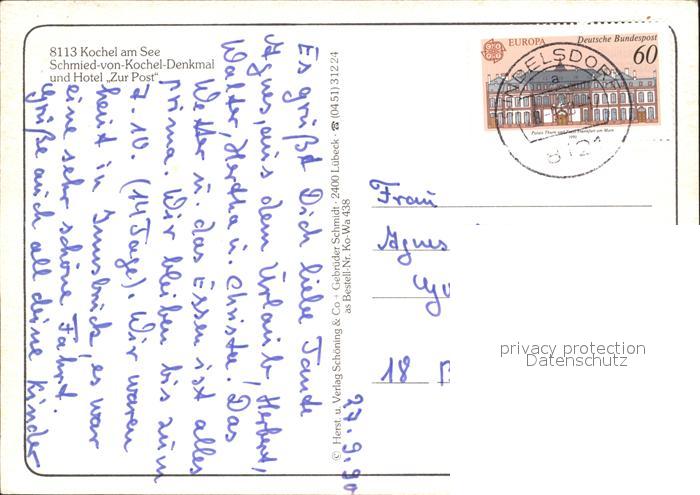 8113 Kochel am See
Schmied-von-Kochel-Denkmal
und Hotel „Zur Post“
EUROPA
Deutsche Bundespost
60
Palais Thurn und Taxis Frankfurt am Main
1990
ABELSDORF
a
8121
27.9.90
Es grüßt Dich liebe Tante
Agnes, aus dem Urlaub, Herbert,
Walter, Hertha u. Christa. Das
Wetter u. das Essen ist alles
prima. Wir bleiben bis zum
7.10. (14 Tage). Wir waren
heut in Innsbruck, es war
eine sehr schöne Fahrt.
Grüße auch all deine Kinder
© Herst. u. Verlag Schöning & Co + Gebrüder Schmidt · 2400 Lübeck · ☎ (0451) 31224
as Bestell-Nr. Ko-Wa 438
Frau
Agnes
18
privacy protection
Datenschutz